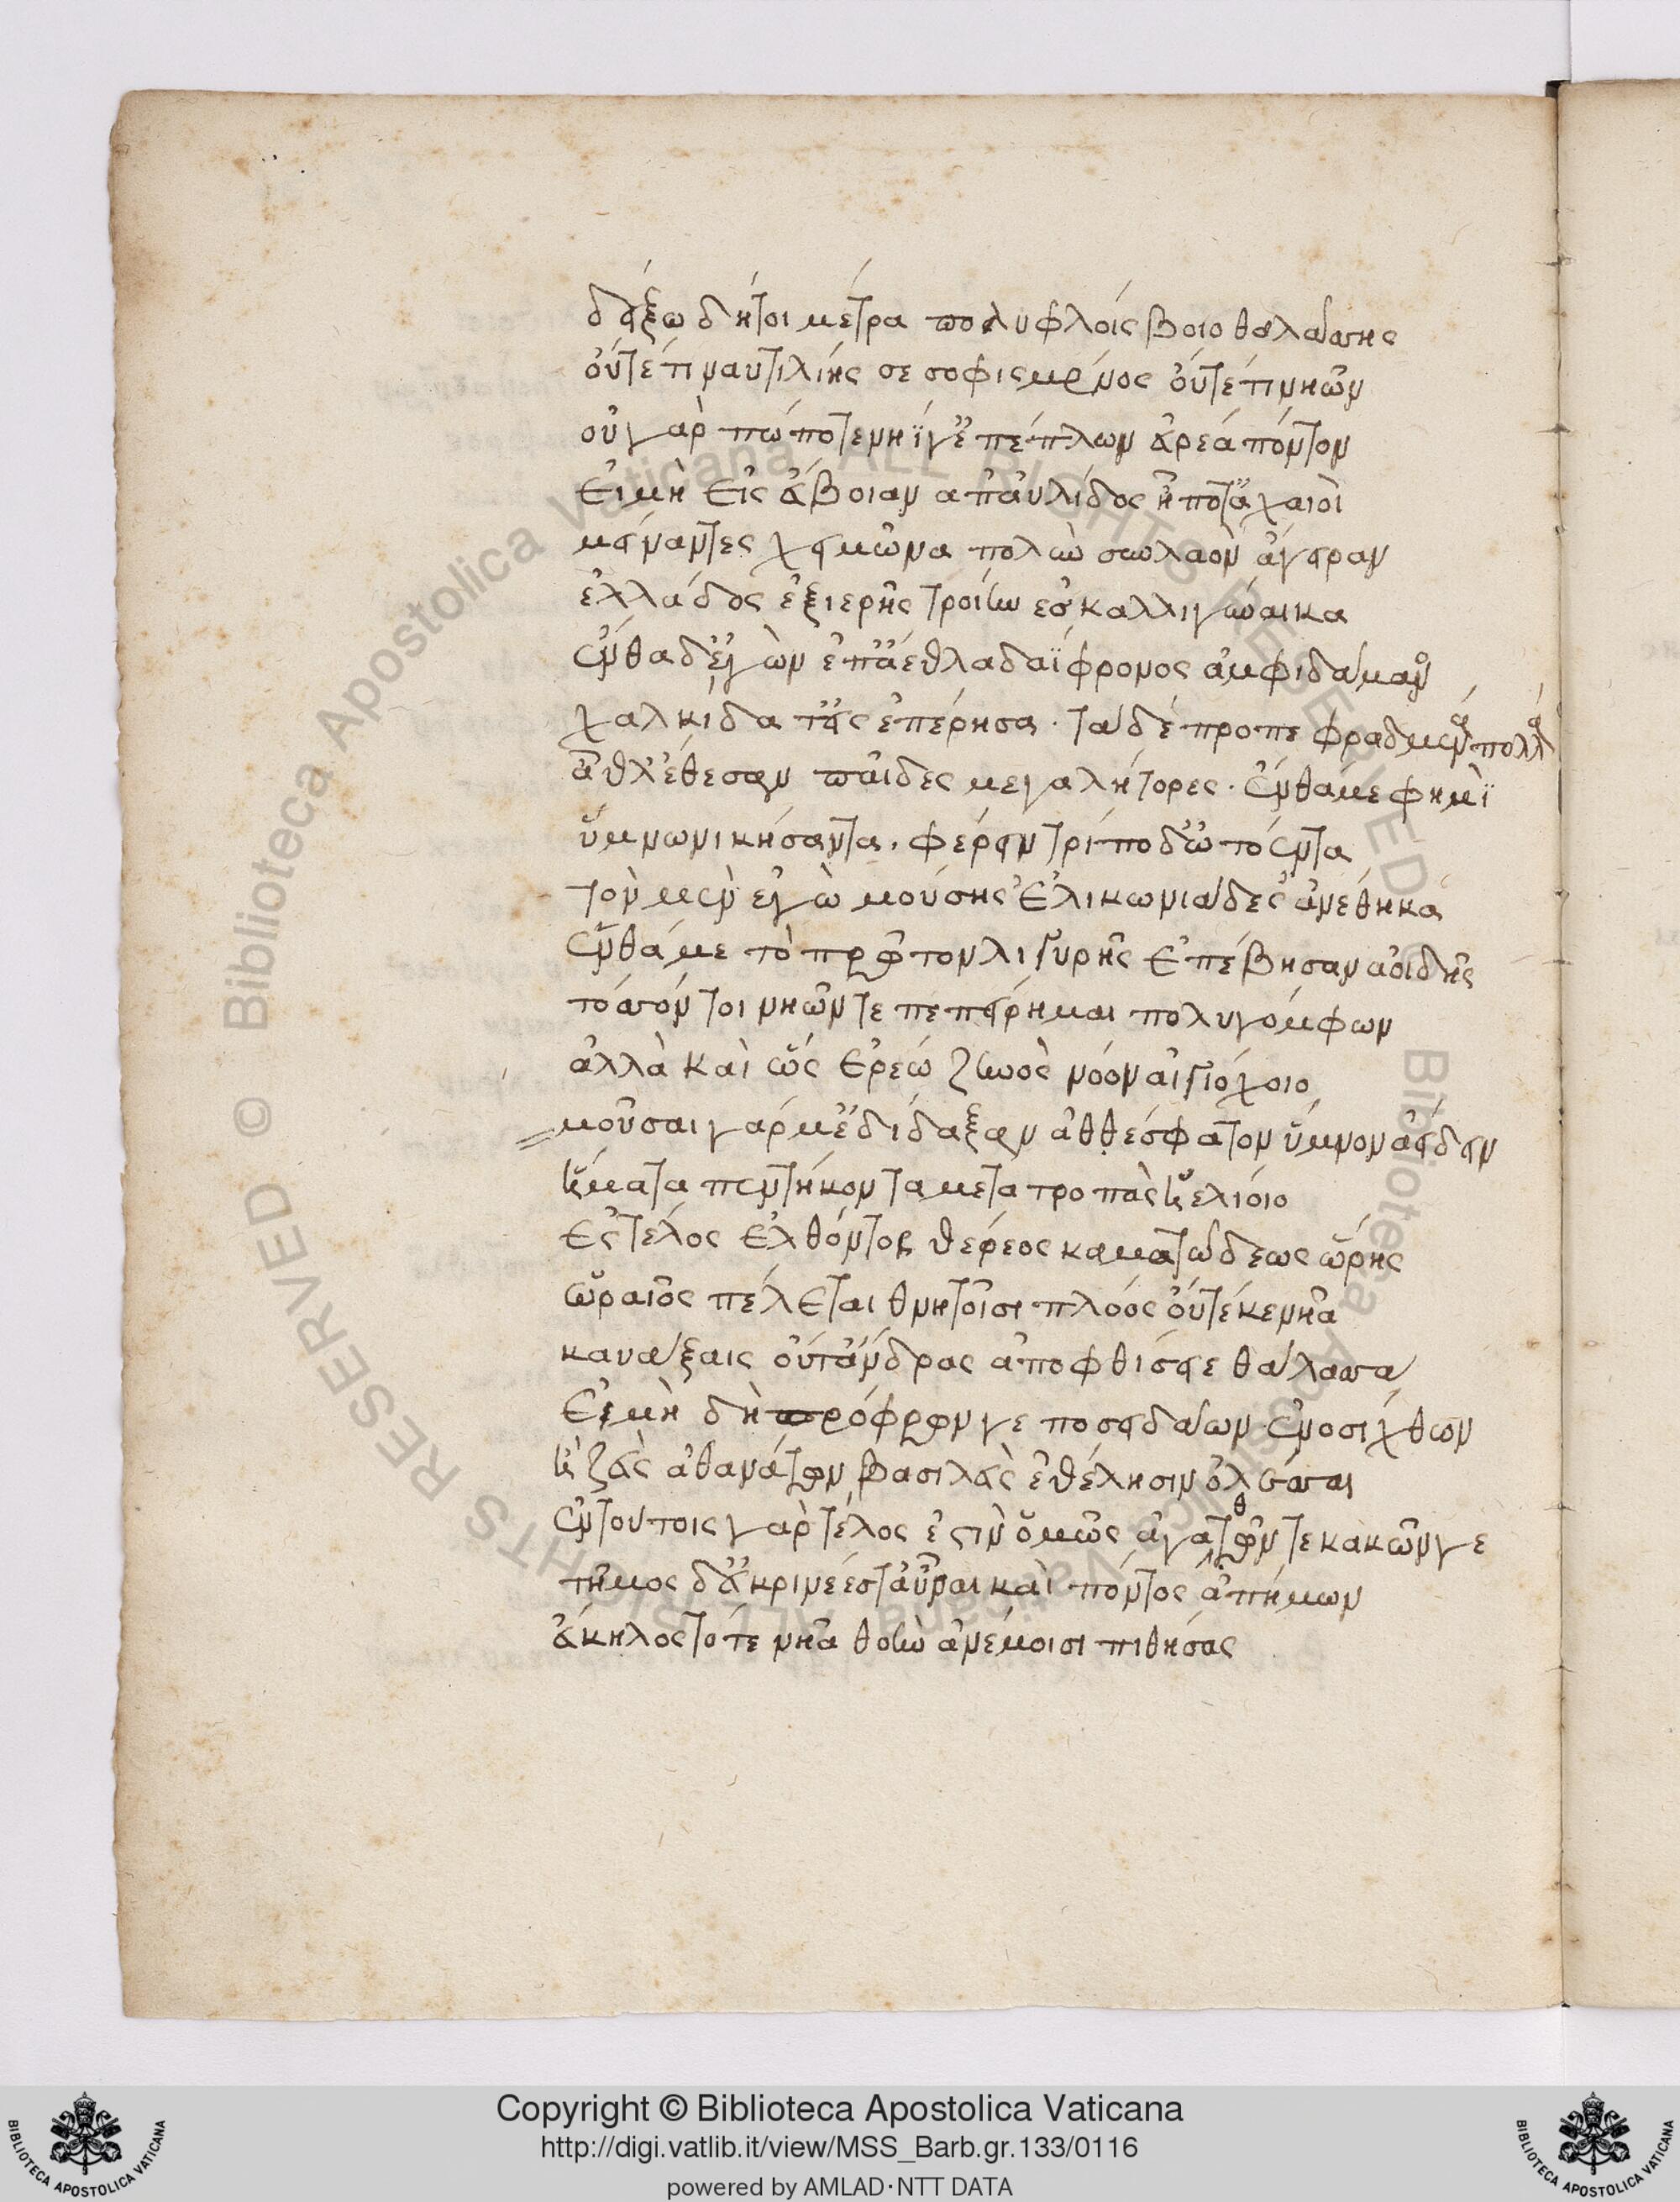 δείξω δήτοι μέτρα πολυφλοίσβοιο θαλάσσης
οὔτέ τι ναυτιλίης σεσοφισμένος οὔτέ τι νηῶν
οὐ γάρ πώποτε νηῒ γ' ἐπέπλων εὐρέα πόντον
εἰ μὴ εἰς εὔβοιαν ἀπ' αὐλίδος ᾗ ποτ' ἀχαιοὶ
μείναντες χειμῶνα πολὺν σὺν λαὸν ἄγειραν
ἑλλάδος ἐξ ἱερῆς τροίην ἐς καλλιγύναικα
ἔνθα δ' ἐγὼν ἐπ' ἄεθλα δαΐφρονος ἀμφιδάμαντος
χαλκίδα τ' εἰς ἐπέρησα · τὰ δὲ προπεφραδμένα πολλὰ
ἆθλ' ἔθεσαν παῖδες μεγαλήτορες · ἔνθά με φημὶ
ὕμνω νικήσαντα, φέρειν τρίποδ' ὠτόεντα
τὸν μὲν ἐγὼ μούσης ἑλικωνιάδεσ' ἀνέθηκα
ἔνθά με τὸ πρῶτον λιγυρῆς ἐπέβησαν ἀοιδῆς
τόσσον τοι νηῶν τε πεπείρημαι πολυγόμφων
ἀλλὰ καὶ ὣς ἐρέω ζηνὸς νόον αἰγιόχοιο
μοῦσαι γάρ μ' ἐδίδαξαν ἀθθέσφατον ὕμνον ἀείδειν
ἤματα πεντήκοντα μετὰ τροπὰς ἠελίοιο
ἐς τέλος ἐλθόντος θέρεος καματώδεως ὥρης
ὡραῖος πέλεται θνητοῖσι πλόος οὔτέ κε νῆα
καυάξαις οὔτ' ἄνδρας ἀποφθίσειε θάλασσα
εἰ μὴ δὴ πρόφρων γε ποσειδάων ἐνοσίχθων
ἢ ζεὺς ἀθανάτων βασιλεὺς ἐθέλησιν ὀλέσσαι
ἐν τουτοις γὰρ τέλος ἐστὶν ὅμῶς ἀγαθῶν τε κακῶν γε
τῆμος δ' εὐκρινέές τ' αὖραι καὶ πόντος ἀπήμων
εὔκηλος τότε νῆα θοὴν ἀνέμοισι πιθήσας
Copyright © Biblioteca Apostolica Vaticana
http://digi.vatlib.it/view/MSS_Barb.gr.133/0116
powered by AMLAD·NTT DATA